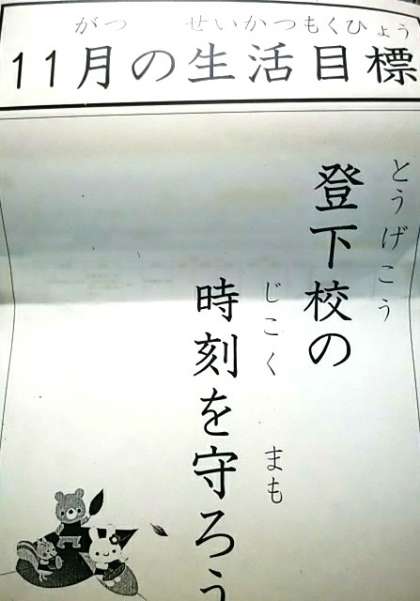 がつ せいかつもくひょう
11月の生活目標
とうげこう
登下校の
じこく まも
時刻を守ろう